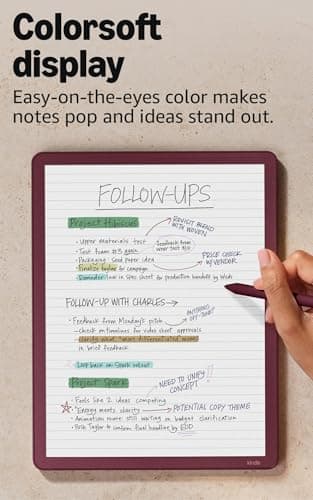 Colorsoft
display
Easy-on-the-eyes color makes
notes pop and ideas stand out.
FOLLOW-UPS
Project Hibiscus
REVISIT BLEND
WITH WOVEN
• Upper materials test
• Test foam #3 again
Feedback from
wear test
• Packaging: Seed paper idea
• Finalize tagline for campaign
PRICE CHECK
w/ VENDOR
• Reminder: in Spec sheet for production handoff by Weds
FOLLOW-UP WITH CHARLES →
ANYTHING
OFF-TONE?
• Feedback from Monday's pitch
– check on timelines for video shoot approvals
– clarify what "more differentiated" means
in brief feedback
• Loop back on Spark rollout
Project Spark
NEED TO UNIFY
CONCEPT
!!
• Feels like 2 ideas competing
• "Energy meets clarity → POTENTIAL COPY THEME
• Animation more: still waiting on budget clarification
• Ask Taylor to confirm final headline by EOD
kindle